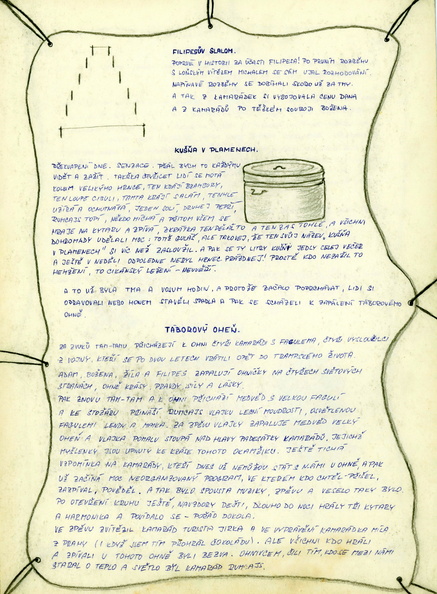 FILIPESŮV SLALOM.
POPRVÉ V HISTORII ZA ÚČASTI FILIPESA! PO PRVNÍM ROZBĚHU
S LOŇSKÝM VÍTĚZEM MICHALEM SE SÁM UJAL ROZHODOVÁNÍ.
NAPÍNAVÉ ROZBĚHY SE DOBÍHALI SKORO UŽ ZA TMY
A TAK Z KAMARÁDEK SI VYBOJOVALA CENU DANA
A Z KAMARÁDŮ PO TĚŽKÉM SOUBOJI BOŽENA.
KUŠŇA V PLAMENECH.
PŘEKVAPENÍ DNE. SENZACE. PŘÁL BYCH TO KAŽDÝMU
VIDĚT A ZAŽÍT. TAKOVÁ DVACET LIDÍ SE MOTÁ
KOLEM VELIKÝHO HRNCE, TEN KRÁJÍ BRAMBORY,
TEN LOUPE CIBULI, TAMTA KRÁJÍ SALÁM, TENHLE
UŽÍRÁ A OCHUTNÁVÁ, JEDEN SOLÍ, DRUHEJ PEPŘÍ,
RUMCAJS TOPÍ, NĚKDO MÍCHÁ A PŘITOM VŠEM SE
HRAJE NA KYTARU A ZPÍVÁ, ZKRÁTKA TEN DĚLÁ TO A TEN ZAS TOHLE, A VŠICHNI
DOHROMADY UDĚLALI MOC TOHO GULÁŠE, ALE TAKOVEJ, ŽE TEN SVŮJ NÁZEV „KUŠŇA
V PLAMENECH" SI VÍC NEŽ ZASLOUŽIL. A PAK SE TY LITRY KUŠNY JEDLY CELEJ VEČER
A JEŠTĚ V NEDĚLI ODPOLEDNE NEBYL HRNEC PRÁZDNEJ! PROSTĚ KDO NEZAŽIL TO
HEMŽENÍ, TO CIKÁNSKÝ LEŽENÍ - NEUVĚŘÍ.
A TO UŽ BYLA TMA A VOSUM HODIN, A PROTOŽE ZAČALO POPRCHÁVAT, LIDI SI
OPRAVOVALI NEBO HONEM STAVĚLI SPADLA A PAK SE SCHÁZELI K ZAPÁLENÍ TÁBOROVÉHO
OHNĚ.
TÁBOROVÝ OHEŇ.
ZA ZVUKŮ TAM-TAMU PŘICHÁZEJÍ K OHNI ČTYŘI KAMARÁDI S FAGULEMA, ČTYŘI VYSLOUŽILCI
Z VOJNY, KTEŘÍ SE PO DVOU LETECH VRÁTILI OPĚT DO TRAMPSKÉHO ŽIVOTA.
ADAM, BOŽENA, ŽÍLA A FILIPES ZAPALUJÍ OHNÍČKY NA ČTYŘECH SVĚTOVÝCH
STRANÁCH, OHNĚ KRÁSY, PRAVDY, SÍLY A LÁSKY.
PAK ZNOVU TAM-TAM A K OHNI PŘICHÁZÍ MEDVĚD S VELKOU FAGULÍ
A KE STOŽÁRU PŘINÁŠÍ RUMCAJS VLAJKU LESNÍ MOUDROSTI, OSVĚTLENOU
FAGULEMI LENDY A MAKA. ZA ZPĚVU VLAJKY ZAPALUJE MEDVĚD VELKÝ
OHEŇ A VLAJKA POMALU STOUPÁ NAD HLAVY PADESÁTKY KAMARÁDŮ, JEJICHŽ
MYŠLENKY JSOU UPNUTY KE KRÁSE TOHOTO OKAMŽIKU. JEŠTĚ TICHÁ
VZPOMÍNKA NA KAMARÁDY, KTEŘÍ DNES UŽ NEMŮŽOU STÁT S NÁMI U OHNĚ, A PAK
UŽ ZAČÍNÁ MOC NEORGANIZOVANÝ PROGRAM, VE KTERÉM KDO CHTĚL - PŘIŠEL,
ZAZPÍVAL, POVĚDĚL, A TAK BYLO SPOUSTA MUZIKY, ZPĚVU A VESELO TAKY BYLO.
PO OTEVŘENÍ KRUHU JEŠTĚ, NAVZDORY DEŠTI, DLOUHO DO NOCI HRÁLY TŘI KYTARY
A HARMONIKA A POVÍDALO SE - POŘÁD DOKOLA.
VE ZPĚVU ZVÍTĚZIL KAMARÁD TURISTA JIRKA A VE VYPRÁVĚNÍ KAMARÁDKA MÍA
Z PRAHY (I KDYŽ JSEM TÍM PROHRÁL ČOKOLÁDU). ALE VŠICHNI KDO HRÁLI
A ZPÍVALI U TOHOTO OHNĚ BYLI BEZVA. OHNIVCEM, ČILI TÍM, KDO SE MEZI NÁMI
STARAL O TEPLO A SVĚTLO BYL KAMARÁD RUMCAJS.